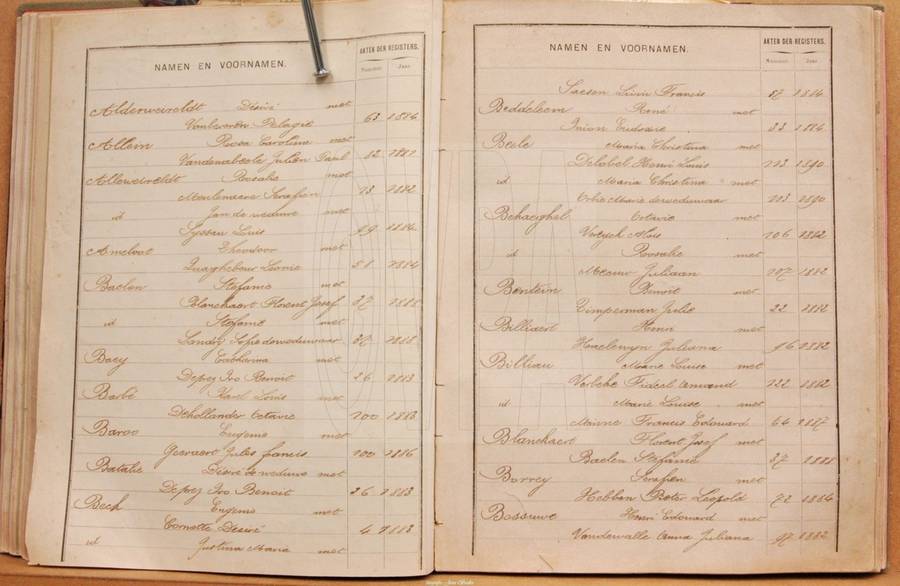 NAMEN EN VOORNAMEN.
AKTEN DER REGISTERS.
Nummer. Jaar.
Alderweireldt Désiré met
63 1884
Allem Rosa Caroline met
Vandenabeele Julien Paul 12 1881
Alleweireldt Rosalie met
Meulenaere Serafien 13 1882
id Jan de weduwe met
Syssau Luis 99 1884
Amelout Theodoor met
Quaghebeur Leonie 58 1884
Baelen Stefanie met
Blanckaert Florent Josef 37 1885
id Stefanie met
Landry Sofie deweduwaar
Baey Catharina met
Deprez Ivo Benoit 26 1883
Barbé Karel Louis met
Dehollander Octavie 100 1883
Baroo Eugenie met
Gervaert Jules francis 100 1886
Batalie Désiré de weduwe met
Deprez Ivo Benoit 26 1883
Bech Eugenie met
Cornette Désiré 4 1883
id Justina Maria met
NAMEN EN VOORNAMEN.
AKTEN DER REGISTERS.
Nummer. Jaar.
Saesen Livin Francis 87 1884
Beddeleem René met
Inion Eudoxie 33 1884
Beele Maria Christina met
Delobel Henri Louis 113 1890
id Maria Christina met
Marie deweduwaar 113 1890
Behaeghel Octavie met
Aloïs 106 1882
id Rosalie met
Meeuw Juliaan 107 1882
Bentein Benoit met
Timperman Julie 22 1882
Billiaert Henri met
Haelewyn Juliana 96 1882
Billiau Marie Louise met
Verbeke Fideel Amand 122 1882
id Marie Louise met
Francis Edouard 64 1887
Blanckaert Florent Josef met
Baelen Stefanie 37 1885
Borrey Serafien met
Hebben Pieter Leopold 72 1884
Bossuwe Henri Edouard met
Vandewalle Anna Juliana 97 1882